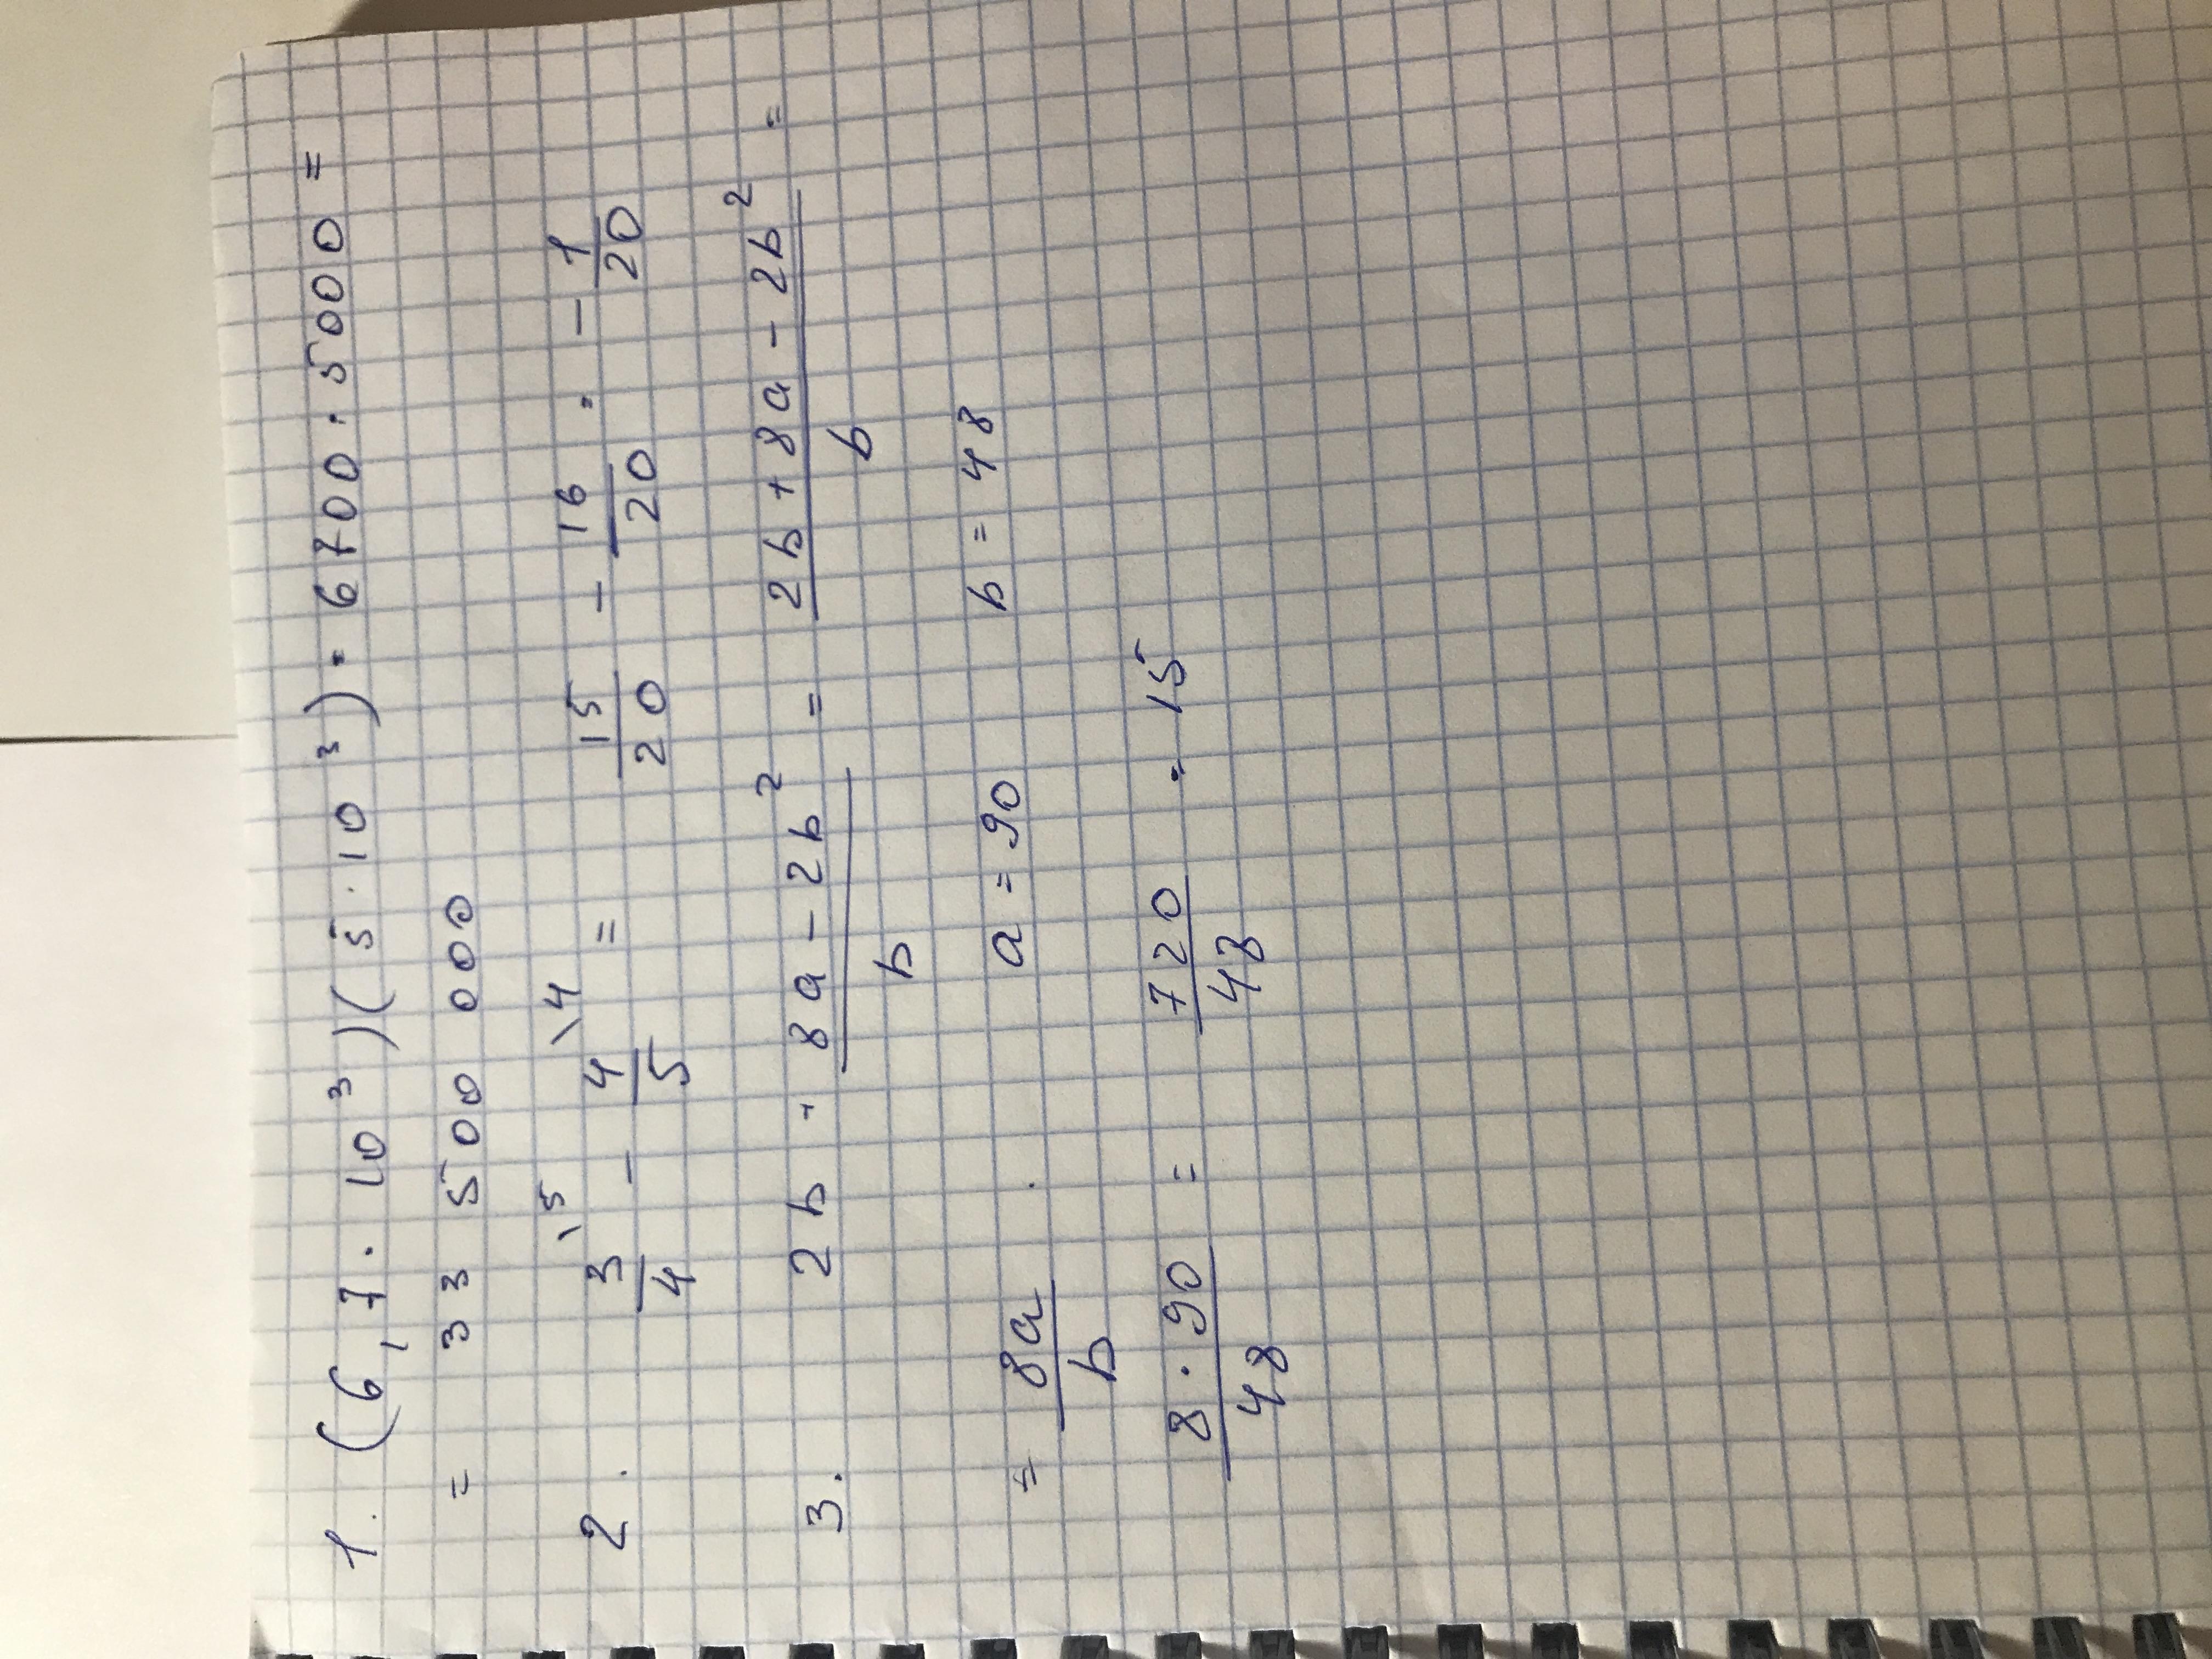 1. (6,7 · 10³)(5 · 10³) = 6700 · 5000 =
= 33 500 000
2. 3/4 \5 - 4/5 \4 = 15/20 - 16/20 = - 1/20
3. 2b + (8a - 2b²)/b = (2b + 8a - 2b²)/b =
= 8a/b . a = 90 b = 48
(8 · 90)/48 = 720/48 = 15